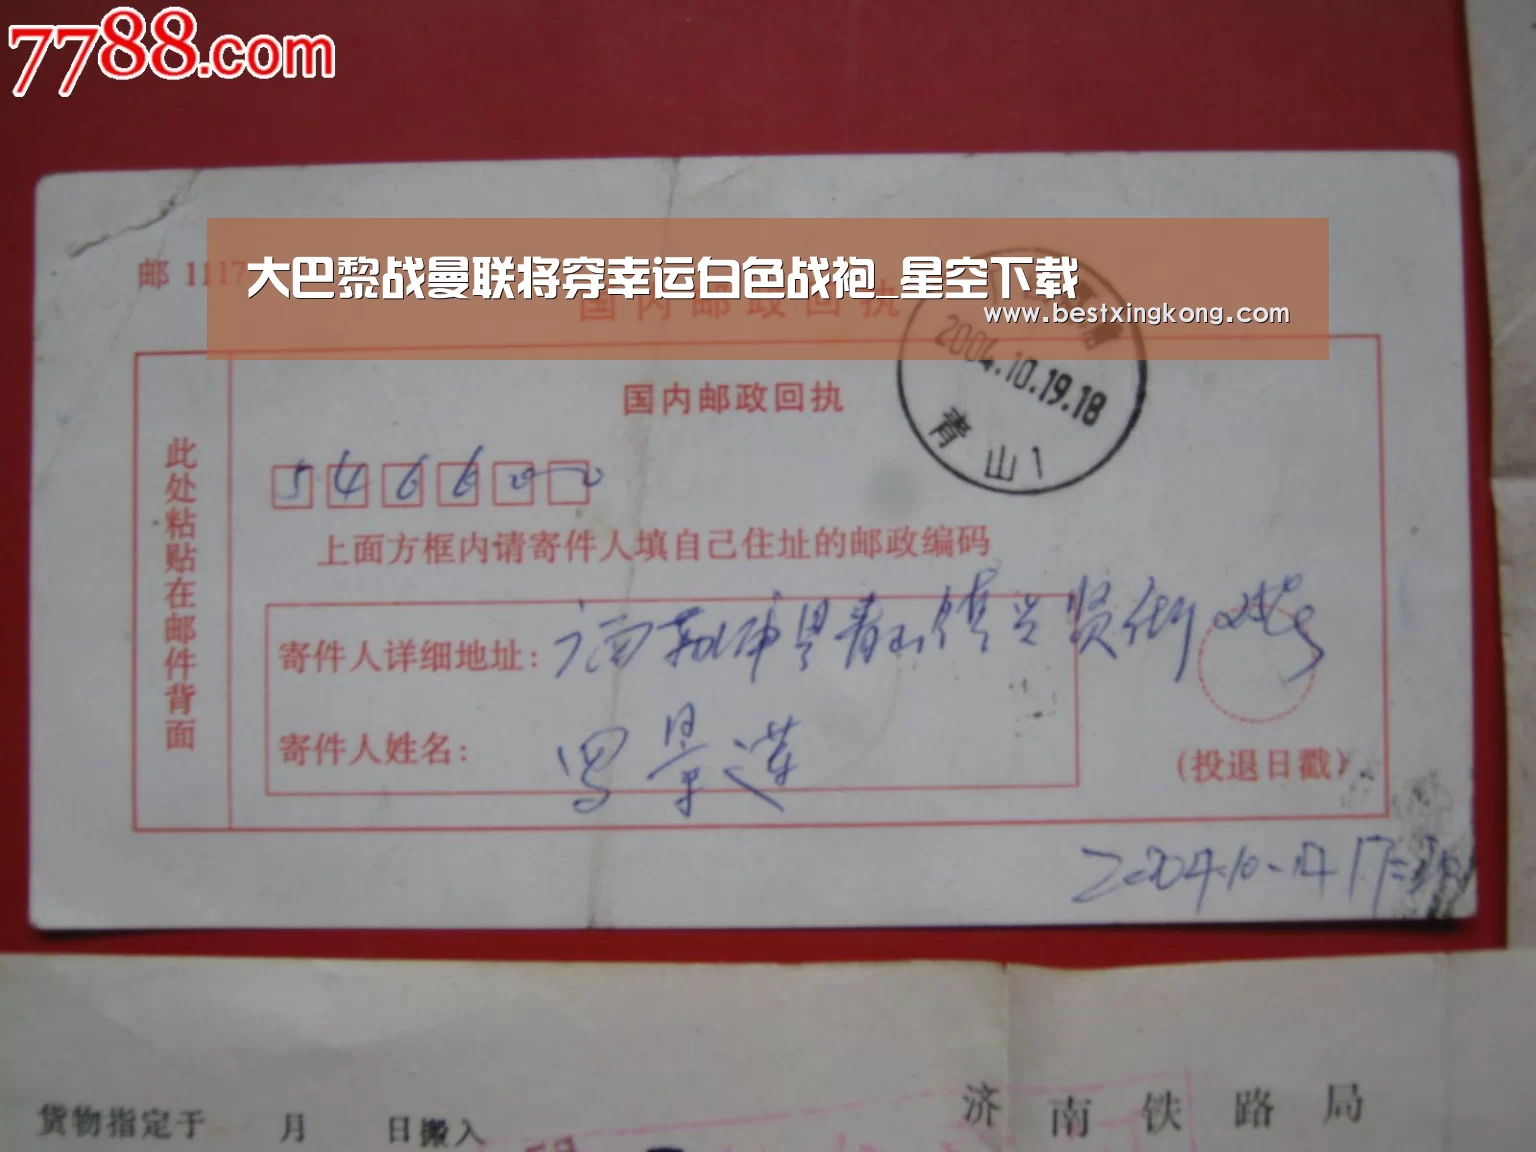 7788.com
邮 1117
大巴黎战曼联将穿幸运白色战袍_星空下载
国内邮政回执
www.bestxingkong.com
2004.10.19.18
青山1
国内邮政回执
此处粘贴在邮件背面
546600
上面方框内请寄件人填自己住址的邮政编码
寄件人详细地址：广西荔浦县青山镇兴贤街
寄件人姓名：罗景莲
(投退日戳)
2004.10.
货物指定于 月 日搬入
济南铁路局